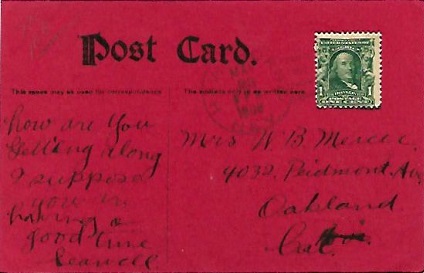 Post Card.
This space may be used for correspondence
The address only to be written here
how are you
Getting along
I suppose
you are
having a
good time
Leavell.
Mrs W B Mercer
4032, Piedmont Ave
Oakland
Cal
1 1
ONE CENT